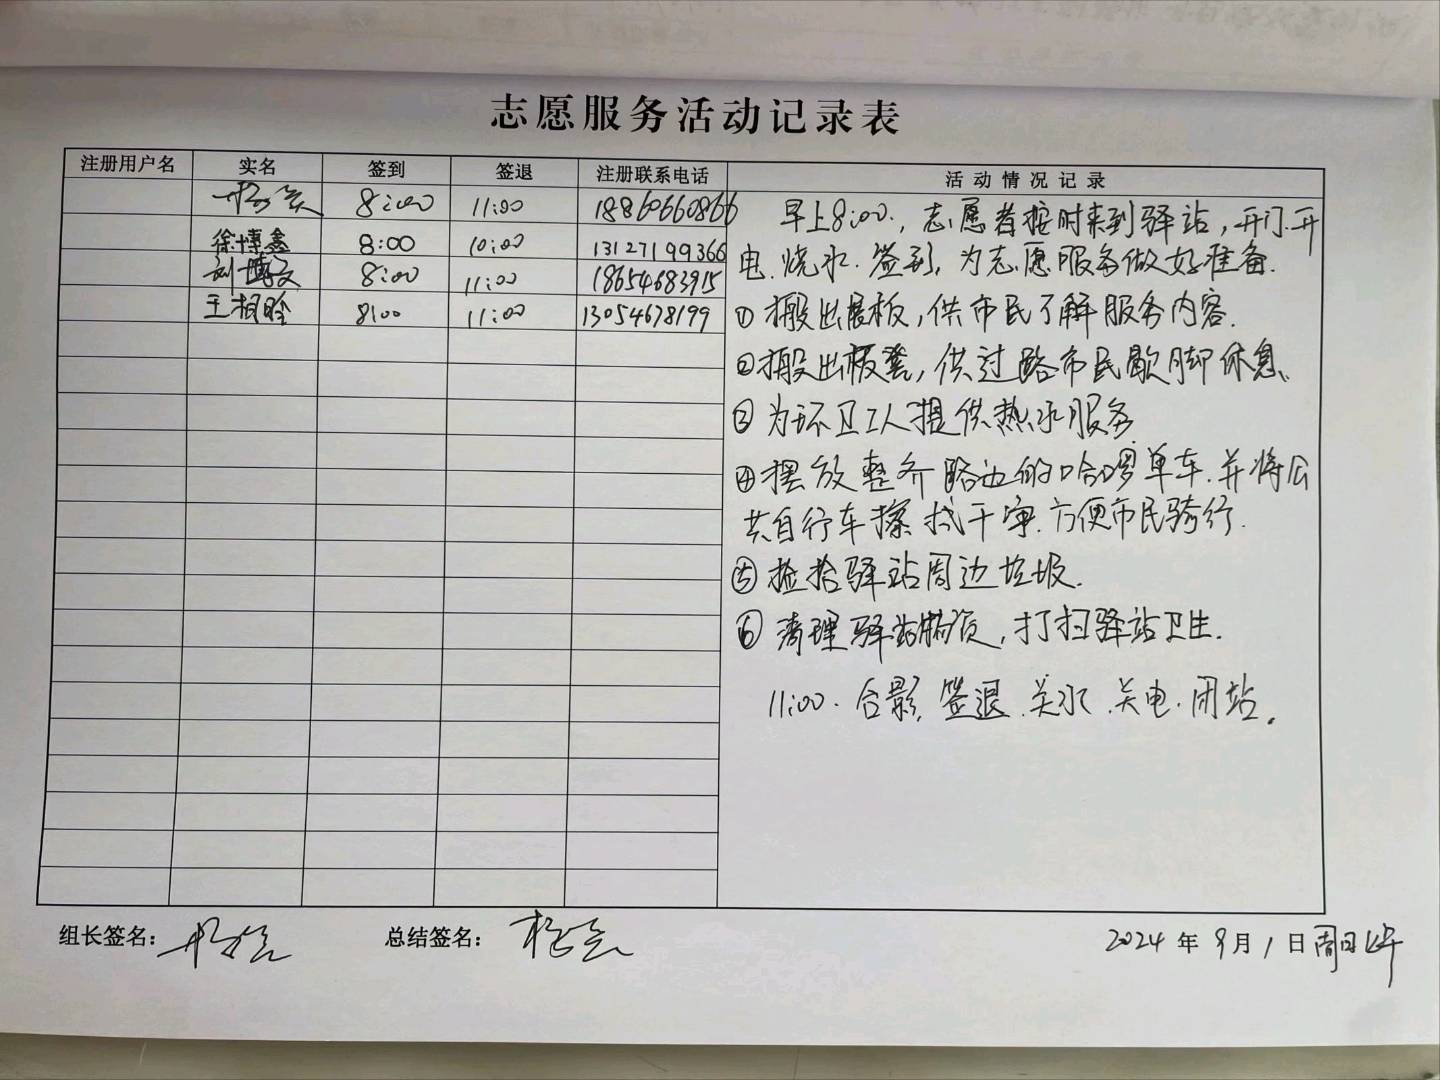 志愿服务活动记录表
注册用户名 实名 签到 签退 注册联系电话 活动情况记录
8:00 11:00 18860660866
徐博鑫 8:00 10:00 13127199366
刘博文 8:00 11:00 18654683915
王相晗 8:00 11:00 13054678199
早上8:00，志愿者按时来到驿站，开门.开
电.烧水.签到，为志愿服务做好准备.
①搬出展板，供市民了解服务内容.
②搬出板凳，供过路市民歇脚休息.
③为环卫工人提供热水服务
④摆放整齐路边的哈啰单车.并将公
共自行车擦拭干净.方便市民骑行.
⑤捡拾驿站周边垃圾.
⑥清理驿站物资，打扫驿站卫生.
11:00.合影.签退.关水.关电.闭站.
组长签名： 总结签名：
2024年9月1日周日上午